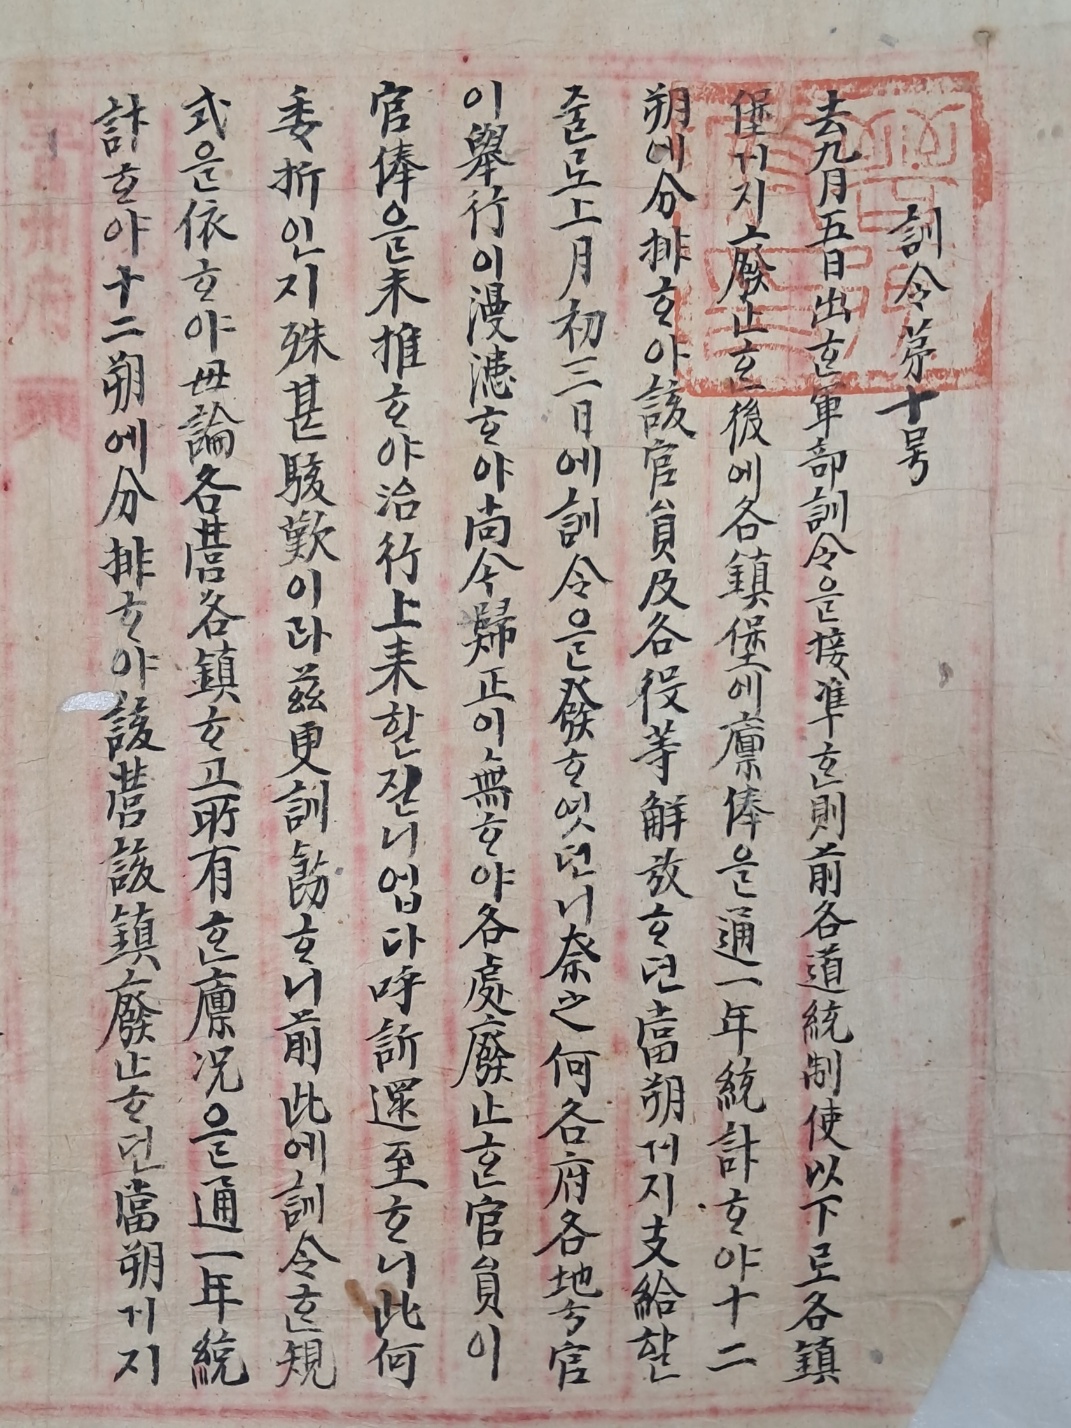 訓令第十号
去九月五日出ᄒᆞᆫ軍部訓令을接準ᄒᆞᆫ則前各道統制使以下로各鎮
堡ᄭᅥ지廢止ᄒᆞᆫ後에各鎮堡에廩俸을通一年統計ᄒᆞ야十二
朔에分排ᄒᆞ야該官員及各役等解放ᄒᆞ던當朔ᄭᅥ지支給ᄒᆞᆯ
줄로上月初三日에訓令을發ᄒᆞ엿더니奈之何各府各地方官
이擧行이漫漶ᄒᆞ야尚今歸正이無ᄒᆞ야各處廢止ᄒᆞᆫ官員이
官俸을未推ᄒᆞ야治行上来ᄒᆞᆫ전니업다呼訴還至ᄒᆞ니此何
委折인지殊甚駭歎이라玆更訓飭ᄒᆞ니前此에訓令ᄒᆞᆫ規
式을依ᄒᆞ야毋論各營各鎮ᄒᆞ고所有ᄒᆞᆫ廩况을通一年統
計ᄒᆞ야十二朔에分排ᄒᆞ야該營該鎮廢止ᄒᆞ던當朔ᄭᅥ지